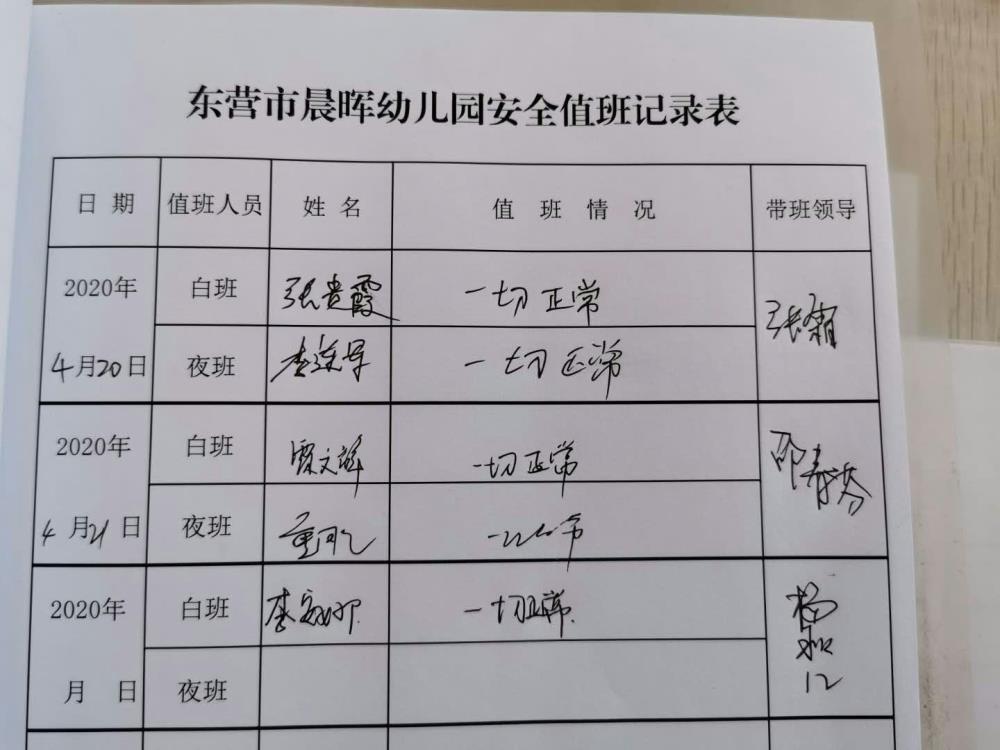 东营市晨晖幼儿园安全值班记录表
日期 值班人员 姓名 值班情况 带班领导
2020年 白班 张贵霞 一切正常 张霜
4月20日 夜班 李连军 一切正常
2020年 白班 一切正常 邵春芬
4月21日 夜班
2020年 白班 一切正常
月 日 夜班